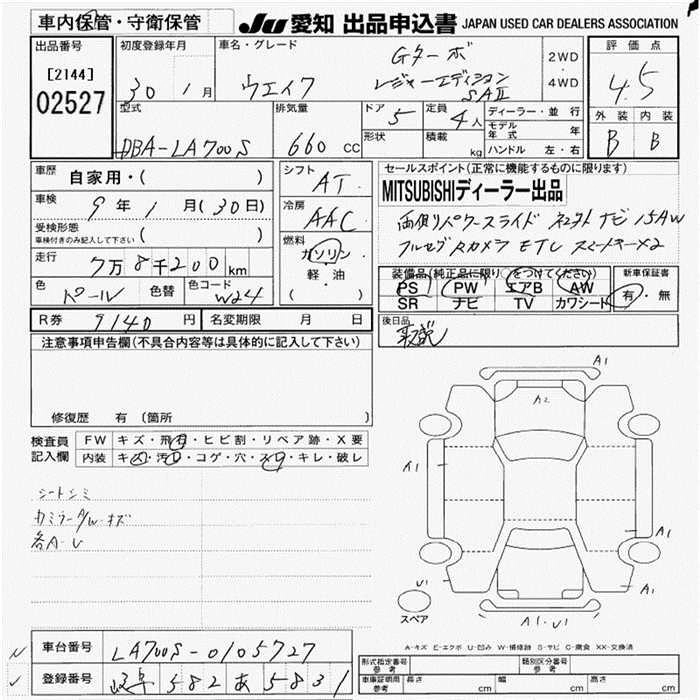 車内保管・守衛保管
JU 愛知 出品申込書 JAPAN USED CAR DEALERS ASSOCIATION
出品番号 初度登録年月 車名・グレード 評価点
[2144]
02527
30 年 1 月
ウエイク
Gターボ
レジャーエディション
SAⅡ
2WD
・
4WD
4.5
型式 排気量 ドア 5 定員 4人 ディーラー・並行 外装 内装
DBA-LA700S 660 CC 形状 積載 kg モデル年式 年 B B
ハンドル 左・右
車歴 自家用・( )
シフト AT
セールスポイント(正常に機能するものに限ります)
MITSUBISHIディーラー出品
車検 9年 1月(30日)
冷房 AAC
両側パワースライド ナビ 15AW
受検形態
車検付きのみ記入して下さい ( )
燃料 ガソリン・軽油 ( )
フルセグ Rカメラ ETC スマートキー×2
走行 7万8千200km
装備品(純正品に限り〇をつけてください) 新車保証書
PS PW エアB AW 有・無
SR ナビ TV カワシート
色 パール 色替 色コード W24
R券 9140円 名変期限 月 日
後日品
注意事項申告欄(不具合内容等は具体的に記入して下さい)
修復歴 有 (箇所
検査員記入欄 FW キズ・飛石・ヒビ割・リペア跡・X要
内装 キズ・汚れ・コゲ・穴・スレ・キレ・破レ
シートシミ
カミラーA/W・キズ
各A・U
A1
A2
A1
A1
A1
U1
A1・U1
スペア
A-キズ E-エクボ U-凹み W-補修跡 S-サビ C-腐食 XX-交換済
車台番号 LA700S-0105727
登録番号 岐阜 582 あ 5831
形式指定番号 参考 類別区分番号 参考
車庫証明用 参考 長さ cm 幅 cm 高さ cm